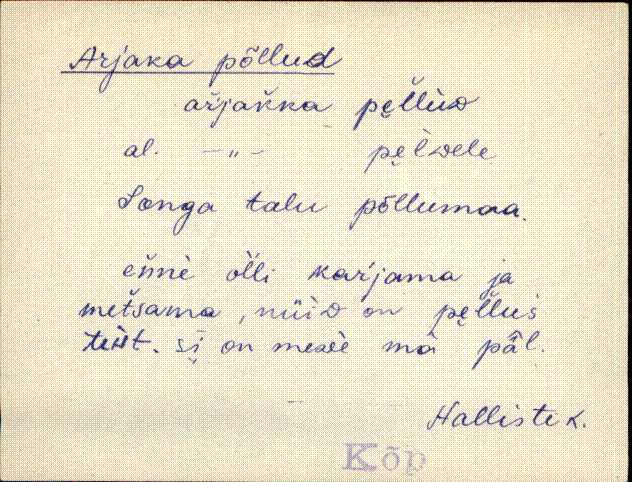 Arjaka põllud
ar̆jak̆ka pęl̆lùD
al. —„— pęl̀Dele
Songa talu põllumaa.
en̆nè ol̆li kar̆jama ja
met̆sama, nüiD on pęl̆lus̀
teĭt. si̮ on mexèè mà pǟl.
Halliste k.
Kõp